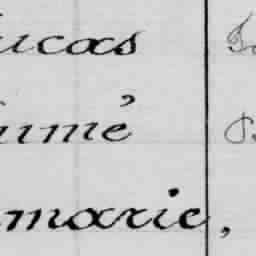 ucas
umé
marie,